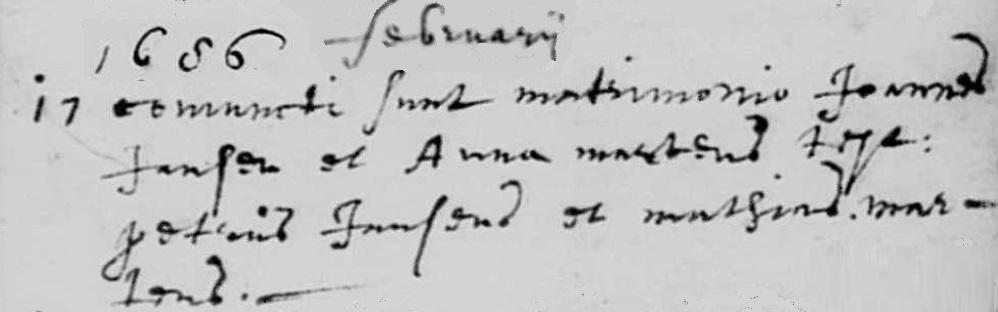 1686 februarij
17 coniuncti sunt matrimonio Joannes
Jansen et Anna martens test:
petrus Jansens et mathias mar-
tens.